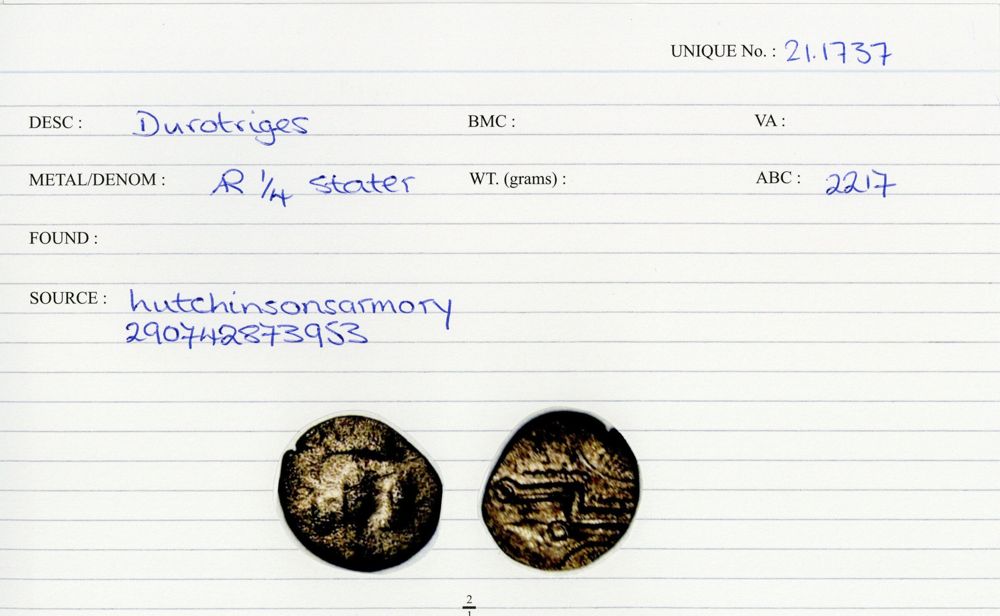 UNIQUE No. : 21.1737
DESC : Durotriges BMC : VA :
METAL/DENOM : AR 1/4 stater WT. (grams) : ABC : 2217
FOUND :
SOURCE : hutchinsonsarmory
290742873953
2
1